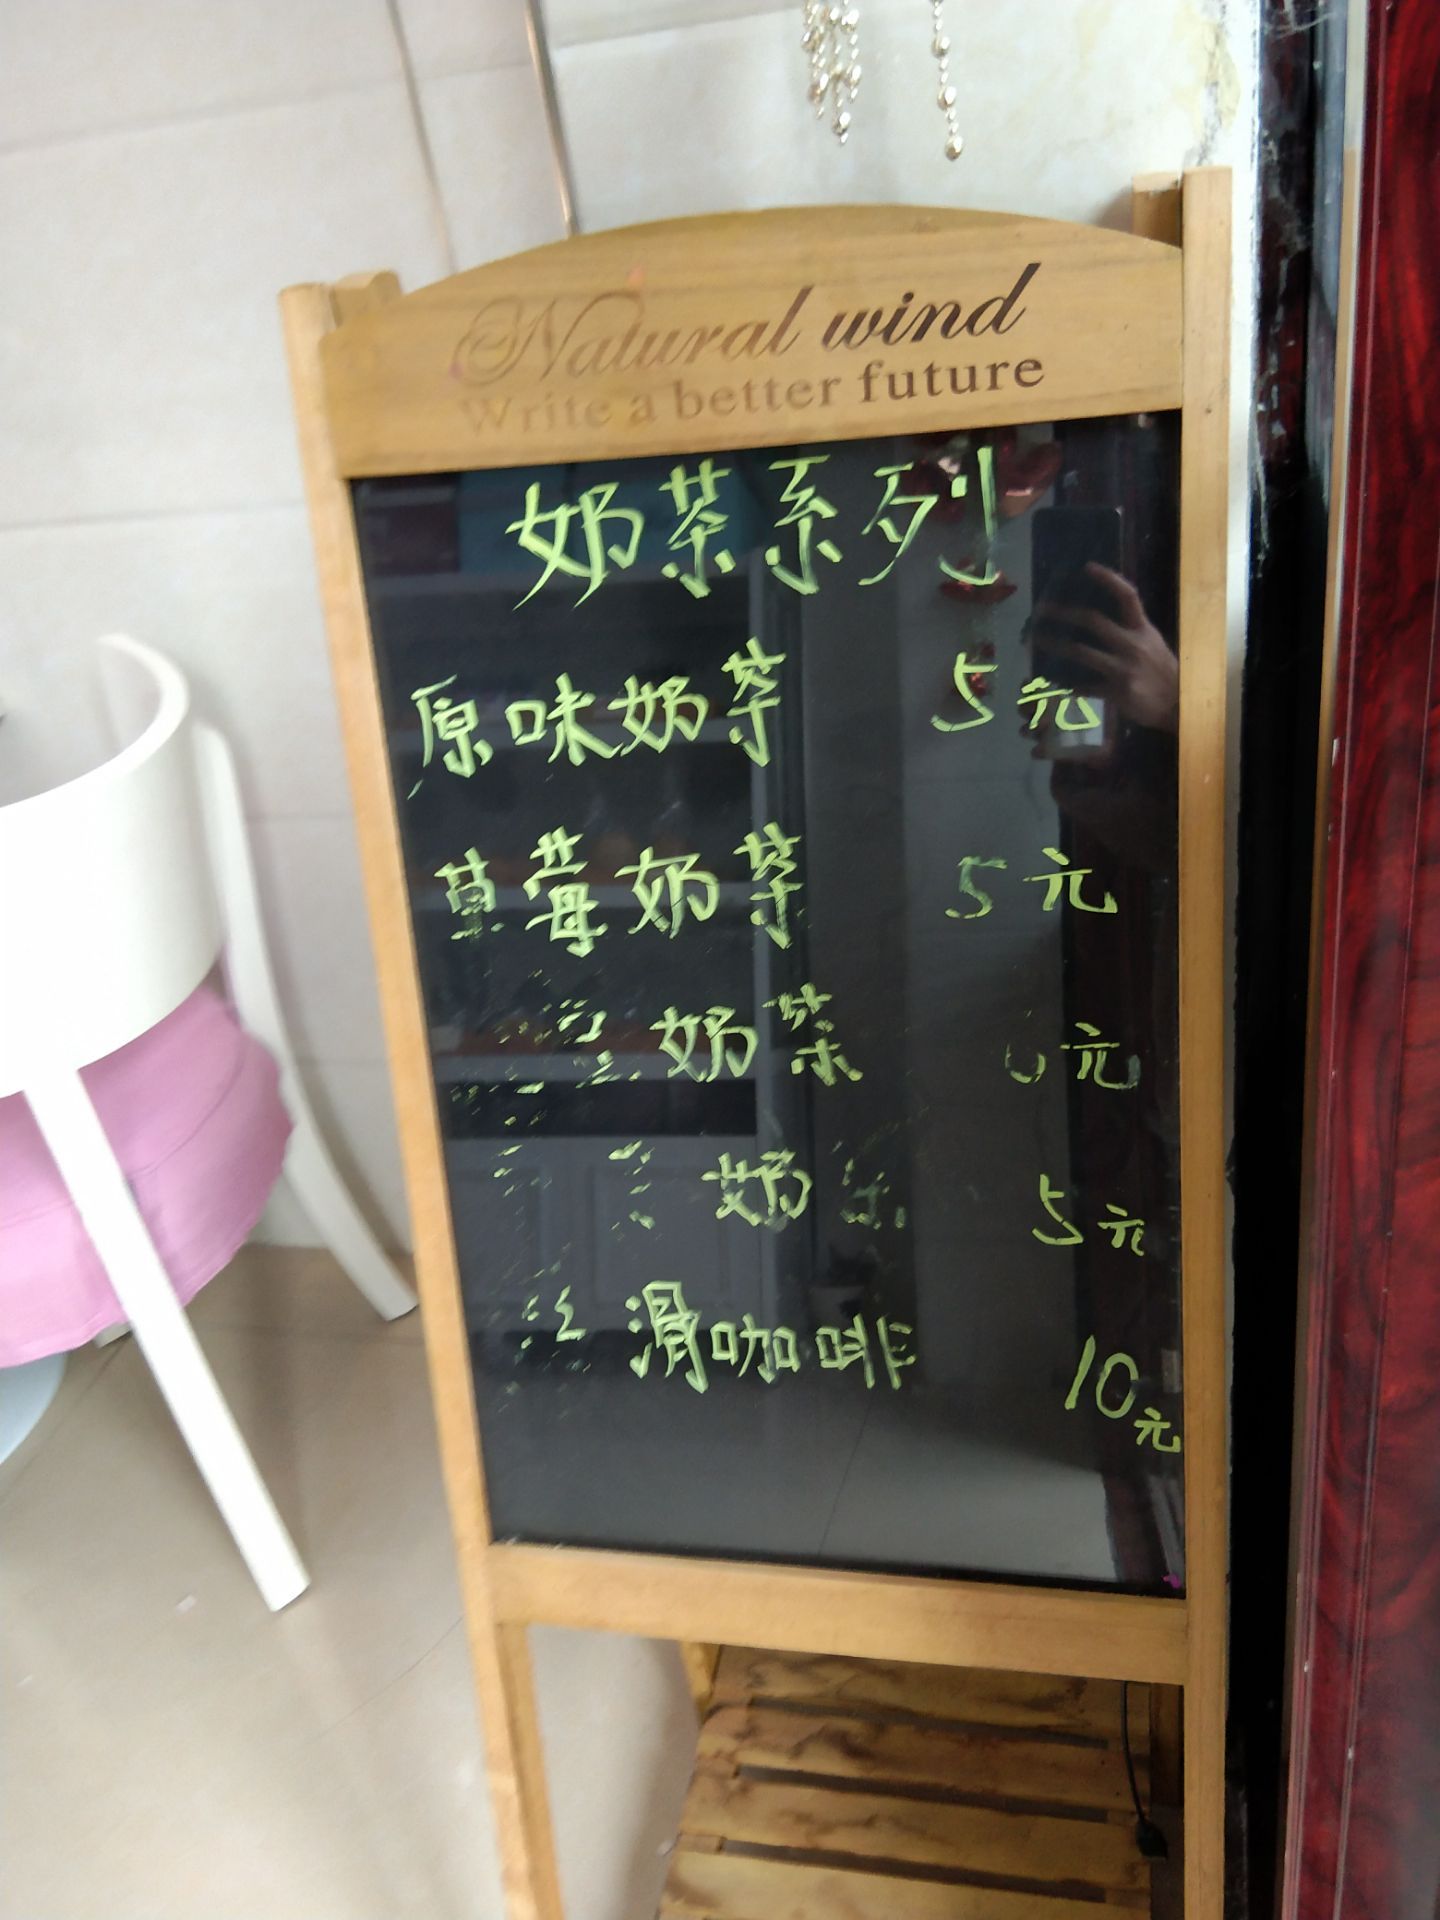 Natural wind
Write a better future
奶茶系列
原味奶茶 5元
草莓奶茶 5元
奶茶 元
奶茶 5元
丝滑咖啡 10元